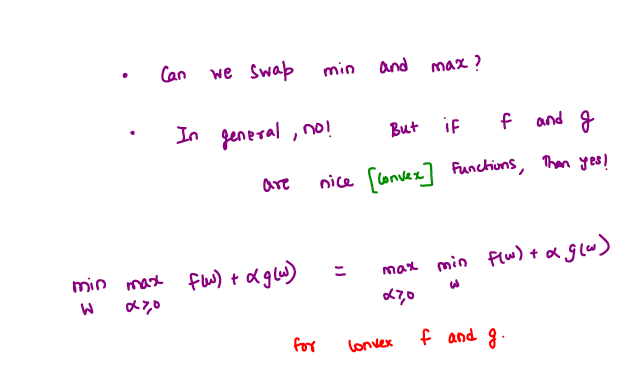 • Can we swap min and max?
• In general, no! But if f and g
are nice [convex] functions, then yes!
min max f(w) + α g(w) = max min f(w) + α g(w)
w α≥0 α≥0 w
for convex f and g.